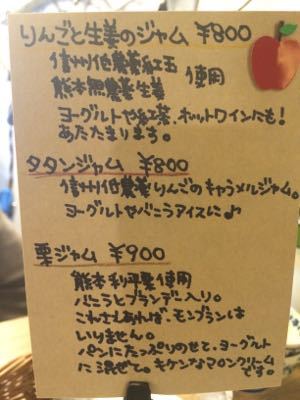 りんごと生姜のジャム ¥800
信州低農薬紅玉
熊本無農薬生姜 使用
ヨーグルトや紅茶、ホットワインにも!
あたたまります。
タタンジャム ¥800
信州低農薬りんごのキャラメルジャム。
ヨーグルトやバニラアイスに♪
栗ジャム ¥900
熊本利平栗使用
バニラとブランデー入り。
これさえあれば、モンブランは
いりません。
パンにたっぷりのせて、ヨーグルト
に混ぜて。キケンなマロンクリーム
です。